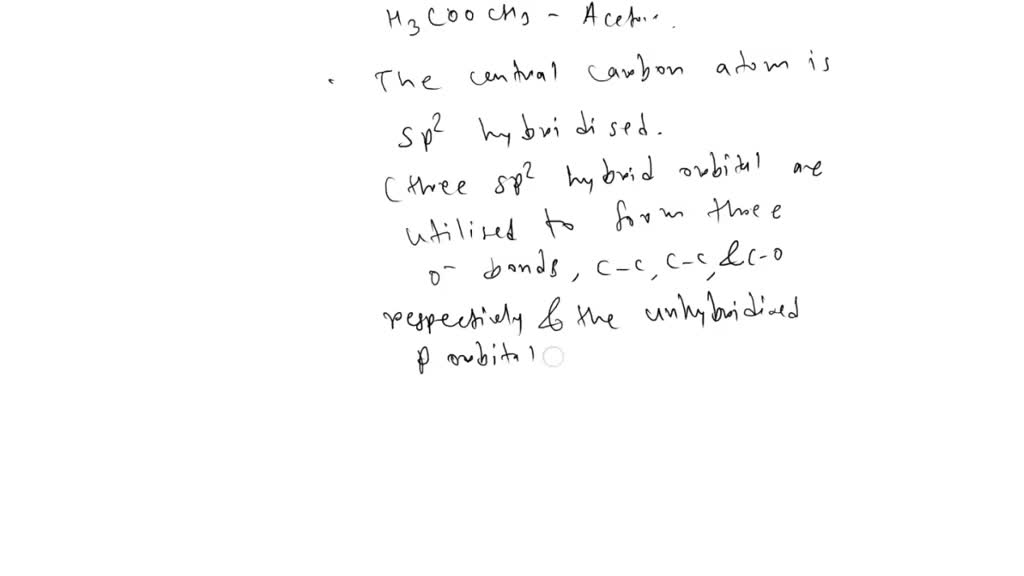 H3COOCH3 - Aceto..
• The central carbon atom is
sp2 hybridised.
(three sp2 hybrid orbital are
utilised to form three
σ bonds, C-C, C-C, & C-O
respectively & the unhybridized
p orbital